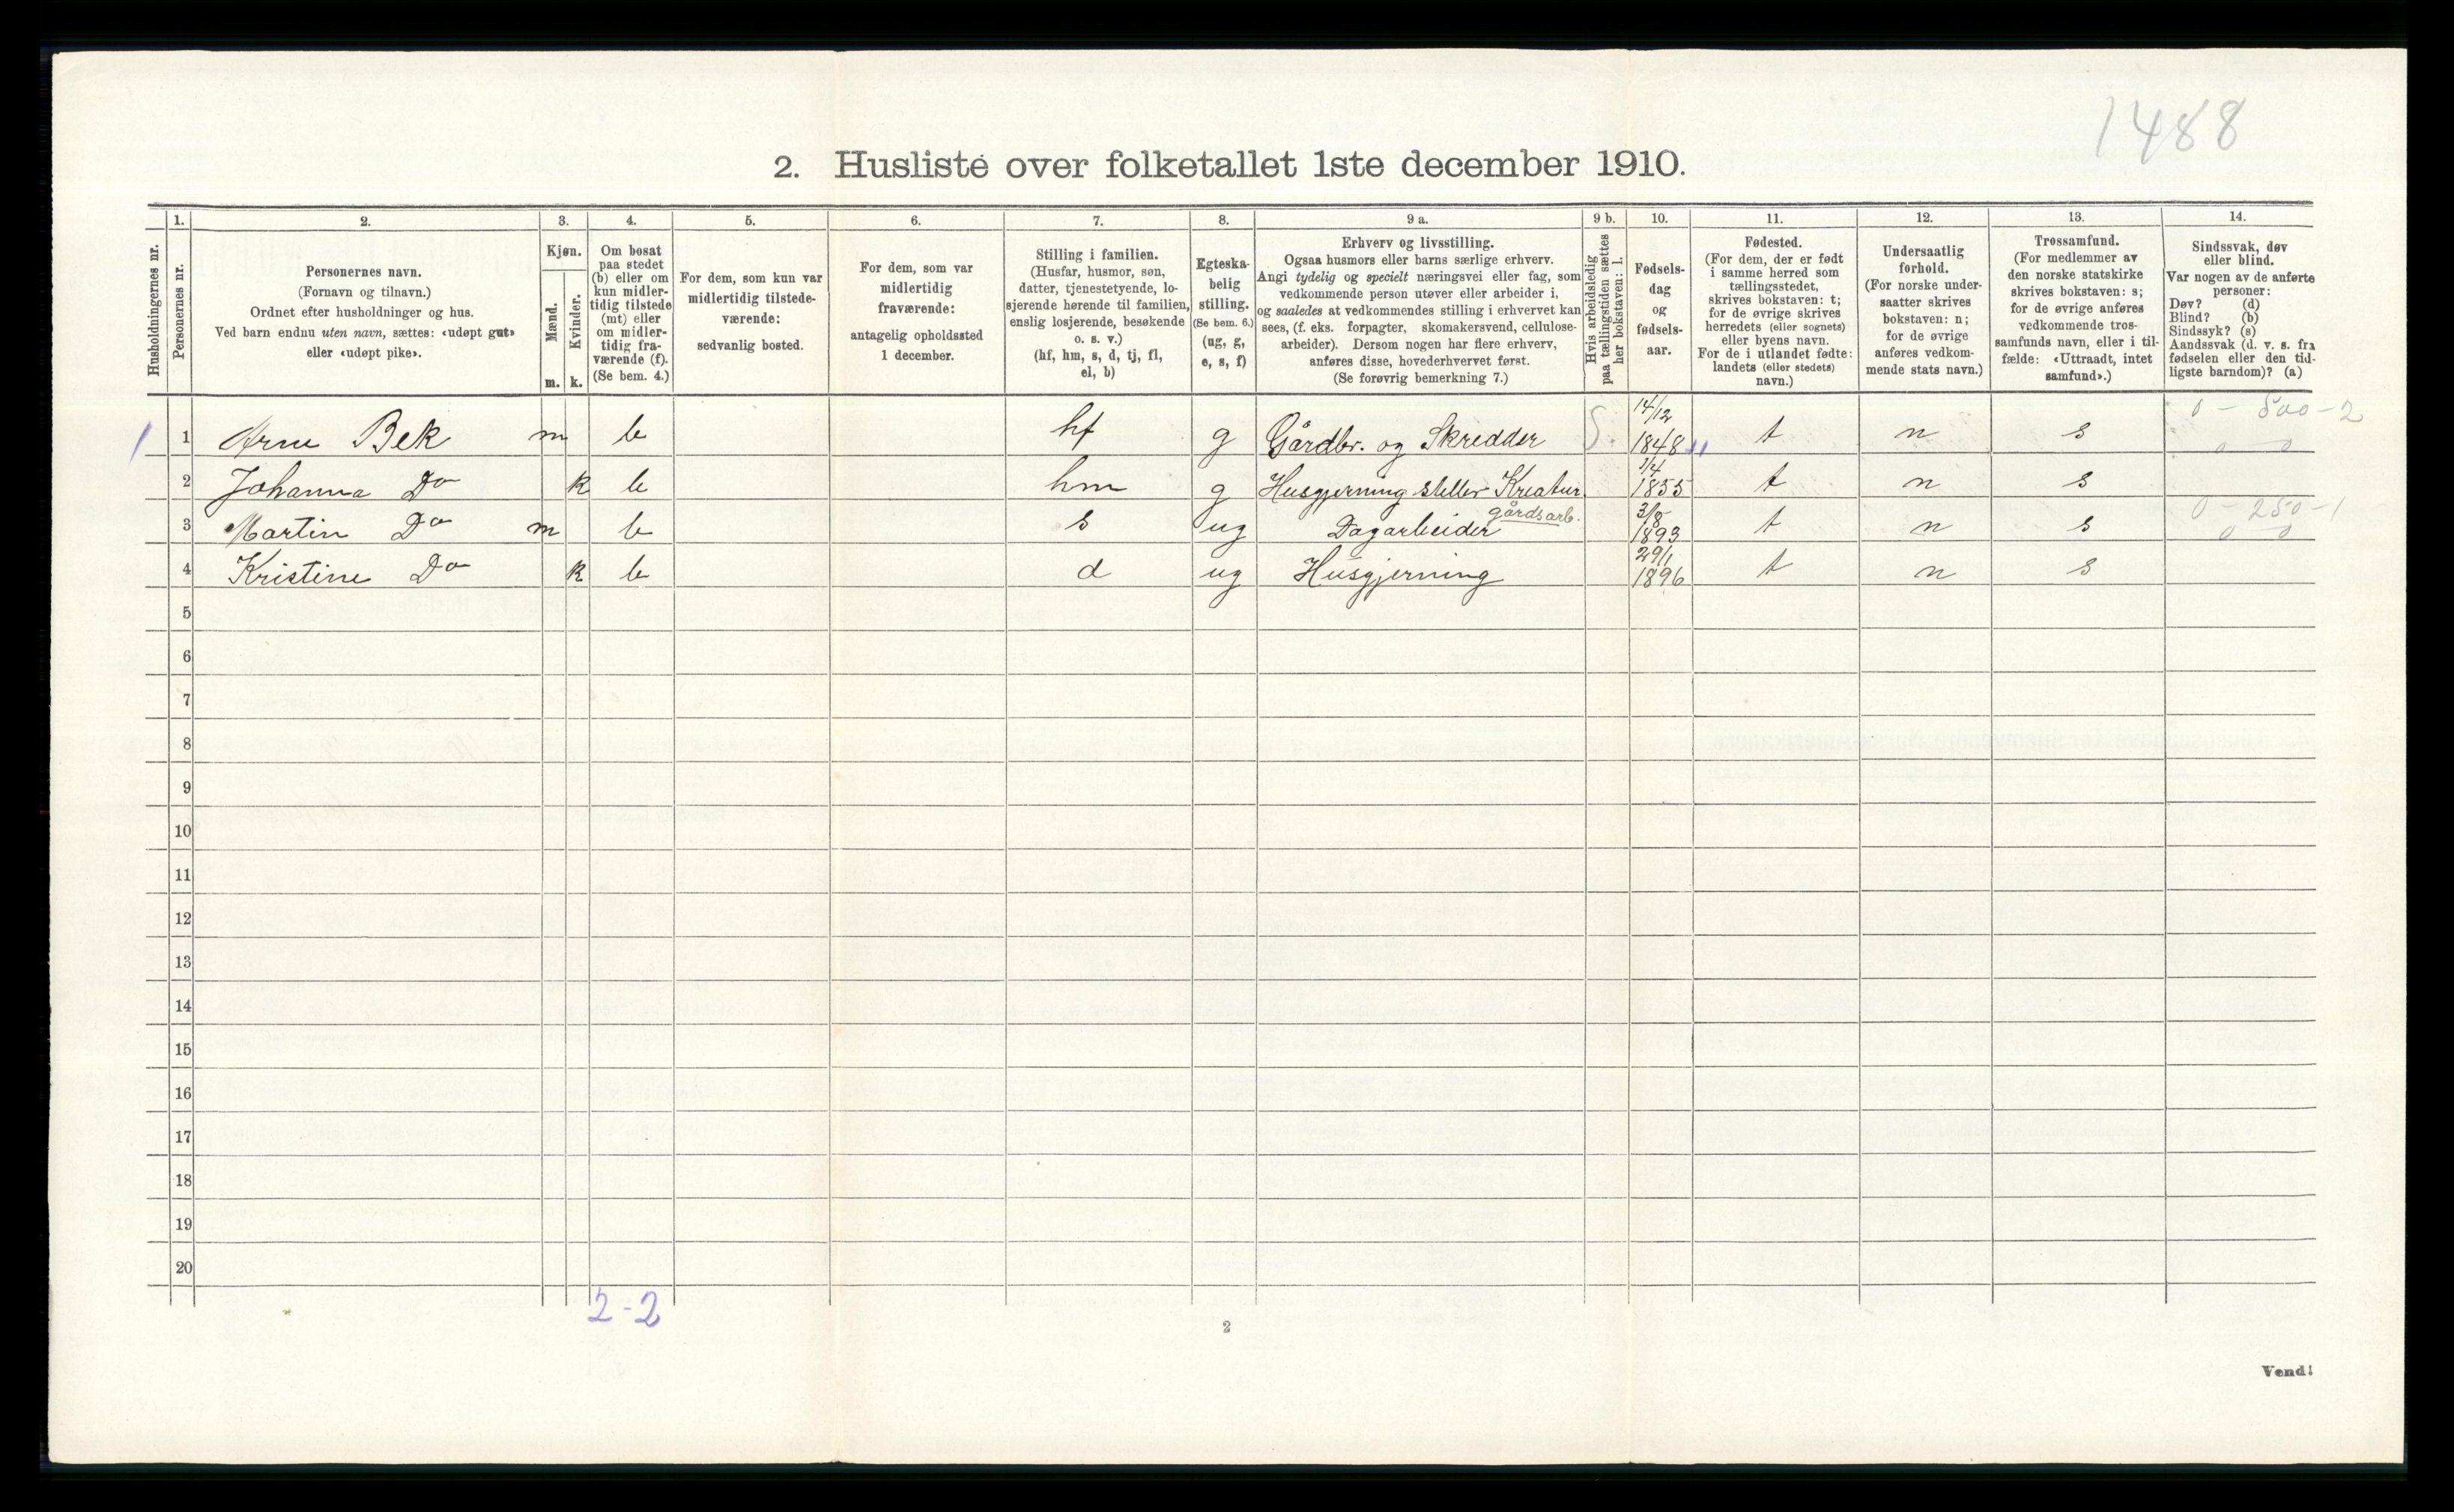 1488
2. Husliste over folketallet 1ste december 1910.
Husholdningernes nr.
1.
Personernes nr.
2.
Personernes navn.
(Fornavn og tilnavn.)
Ordnet efter husholdninger og hus.
Ved barn endnu uten navn, sættes: «udøpt gut»
eller «udøpt pike».
3.
Kjøn.
Mænd.
m.
Kvinder.
k.
4.
Om bosat
paa stedet
(b) eller om
kun midler-
tidig tilstede
(mt) eller
om midler-
tidig fra-
værende (f).
(Se bem. 4.)
5.
For dem, som kun var
midlertidig tilstede-
værende:
sedvanlig bosted.
6.
For dem, som var
midlertidig
fraværende:
antagelig opholdssted
1 december.
7.
Stilling i familien.
(Husfar, husmor, søn,
datter, tjenestetyende, lo-
sjerende hørende til familien,
enslig losjerende, besøkende
o. s. v.)
(hf, hm, s, d, tj, fl,
el, b)
8.
Egteska-
belig
stilling.
(Se bem. 6.)
(ug, g,
e, s, f)
9 a.
Erhverv og livsstilling.
Ogsaa husmors eller barns særlige erhverv.
Angi tydelig og specielt næringsvei eller fag, som
vedkommende person utøver eller arbeider i,
og saaledes at vedkommendes stilling i erhvervet kan
sees, (f. eks. forpagter, skomakersvend, cellulose-
arbeider). Dersom nogen har flere erhverv,
anføres disse, hovederhvervet først.
(Se forøvrig bemerkning 7.)
9 b.
Hvis arbeidsledig
paa tællingstiden sættes
her bokstaven: l.
10.
Fødsels-
dag
og
fødsels-
aar.
11.
Fødested.
(For dem, der er født
i samme herred som
tællingsstedet,
skrives bokstaven: t;
for de øvrige skrives
herredets (eller sognets)
eller byens navn.
For de i utlandet fødte:
landets (eller stedets)
navn.)
12.
Undersaatlig
forhold.
(For norske under-
saatter skrives
bokstaven: n;
for de øvrige
anføres vedkom-
mende stats navn.)
13.
Trossamfund.
(For medlemmer av
den norske statskirke
skrives bokstaven: s;
for de øvrige anføres
vedkommende tros-
samfunds navn, eller i til-
fælde: «Uttraadt, intet
samfund».)
14.
Sindssvak, døv
eller blind.
Var nogen av de anførte
personer:
Døv? (d)
Blind? (b)
Sindssyk? (s)
Aandssvak (d. v. s. fra
fødselen eller den tid-
ligste barndom)? (a)
1 1 Arne Bek m b hf g Gårdbr. og Skredder S. 14/12 1848 t n s 0 - 500 - 2 0 0
2 Johanna Do k b hm g Husgjerning steller Kreatur 1/4 1855 t n s
3 Martin Do m b s ug Dagarbeider gårdsarb. 3/8 1893 t n s 0 - 250 - 1 0 0
4 Kristine Do k b d ug Husgjerning 29/1 1896 t n s
5
6
7
8
9
10
11
12
13
14
15
16
17
18
19
20
2 - 2
2
Vend!